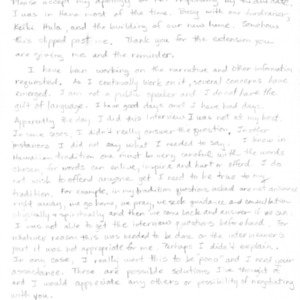 Please accept my apology for not responding by the due date.
I was in Hana most of the time. Busy with our fundraiser,
Keiki Hula, and the building of our new home. Somehow
this slipped past me. Thank you for the extension you
are giving me and the reminder.
I have been working on the narrative and other information
requested. As I continually work on it, several concerns have
emerged. I am not a public speaker and I do not have the
gift of language. I have good days and I have bad days.
Apparently the day I did this interview I was not at my best.
In some cases, I didn't really answer the question. In other
instances I did not say what I needed to say. I know in
Hawaiian tradition one must be very careful with the words
chosen for words can enliven, inspire and hurt or offend. I do
not wish to offend anyone yet I need to be true to my
tradition. For example, in my tradition questions asked are not answered
right away, we go home, we pray, we seek guidance and consultation
physically & spiritually and then we come back and answer if we can.
I was not able to get the interview questions beforehand. For
whatever reason this was needed to be done on the interviewer's
part it was not appropriate for me. Perhaps I didn't explain.
In any case, I really want this to be "pono" and I need your
assistance. These are possible solutions I've thought of
and I would appreciate any others or possibility of negotiating
with you.